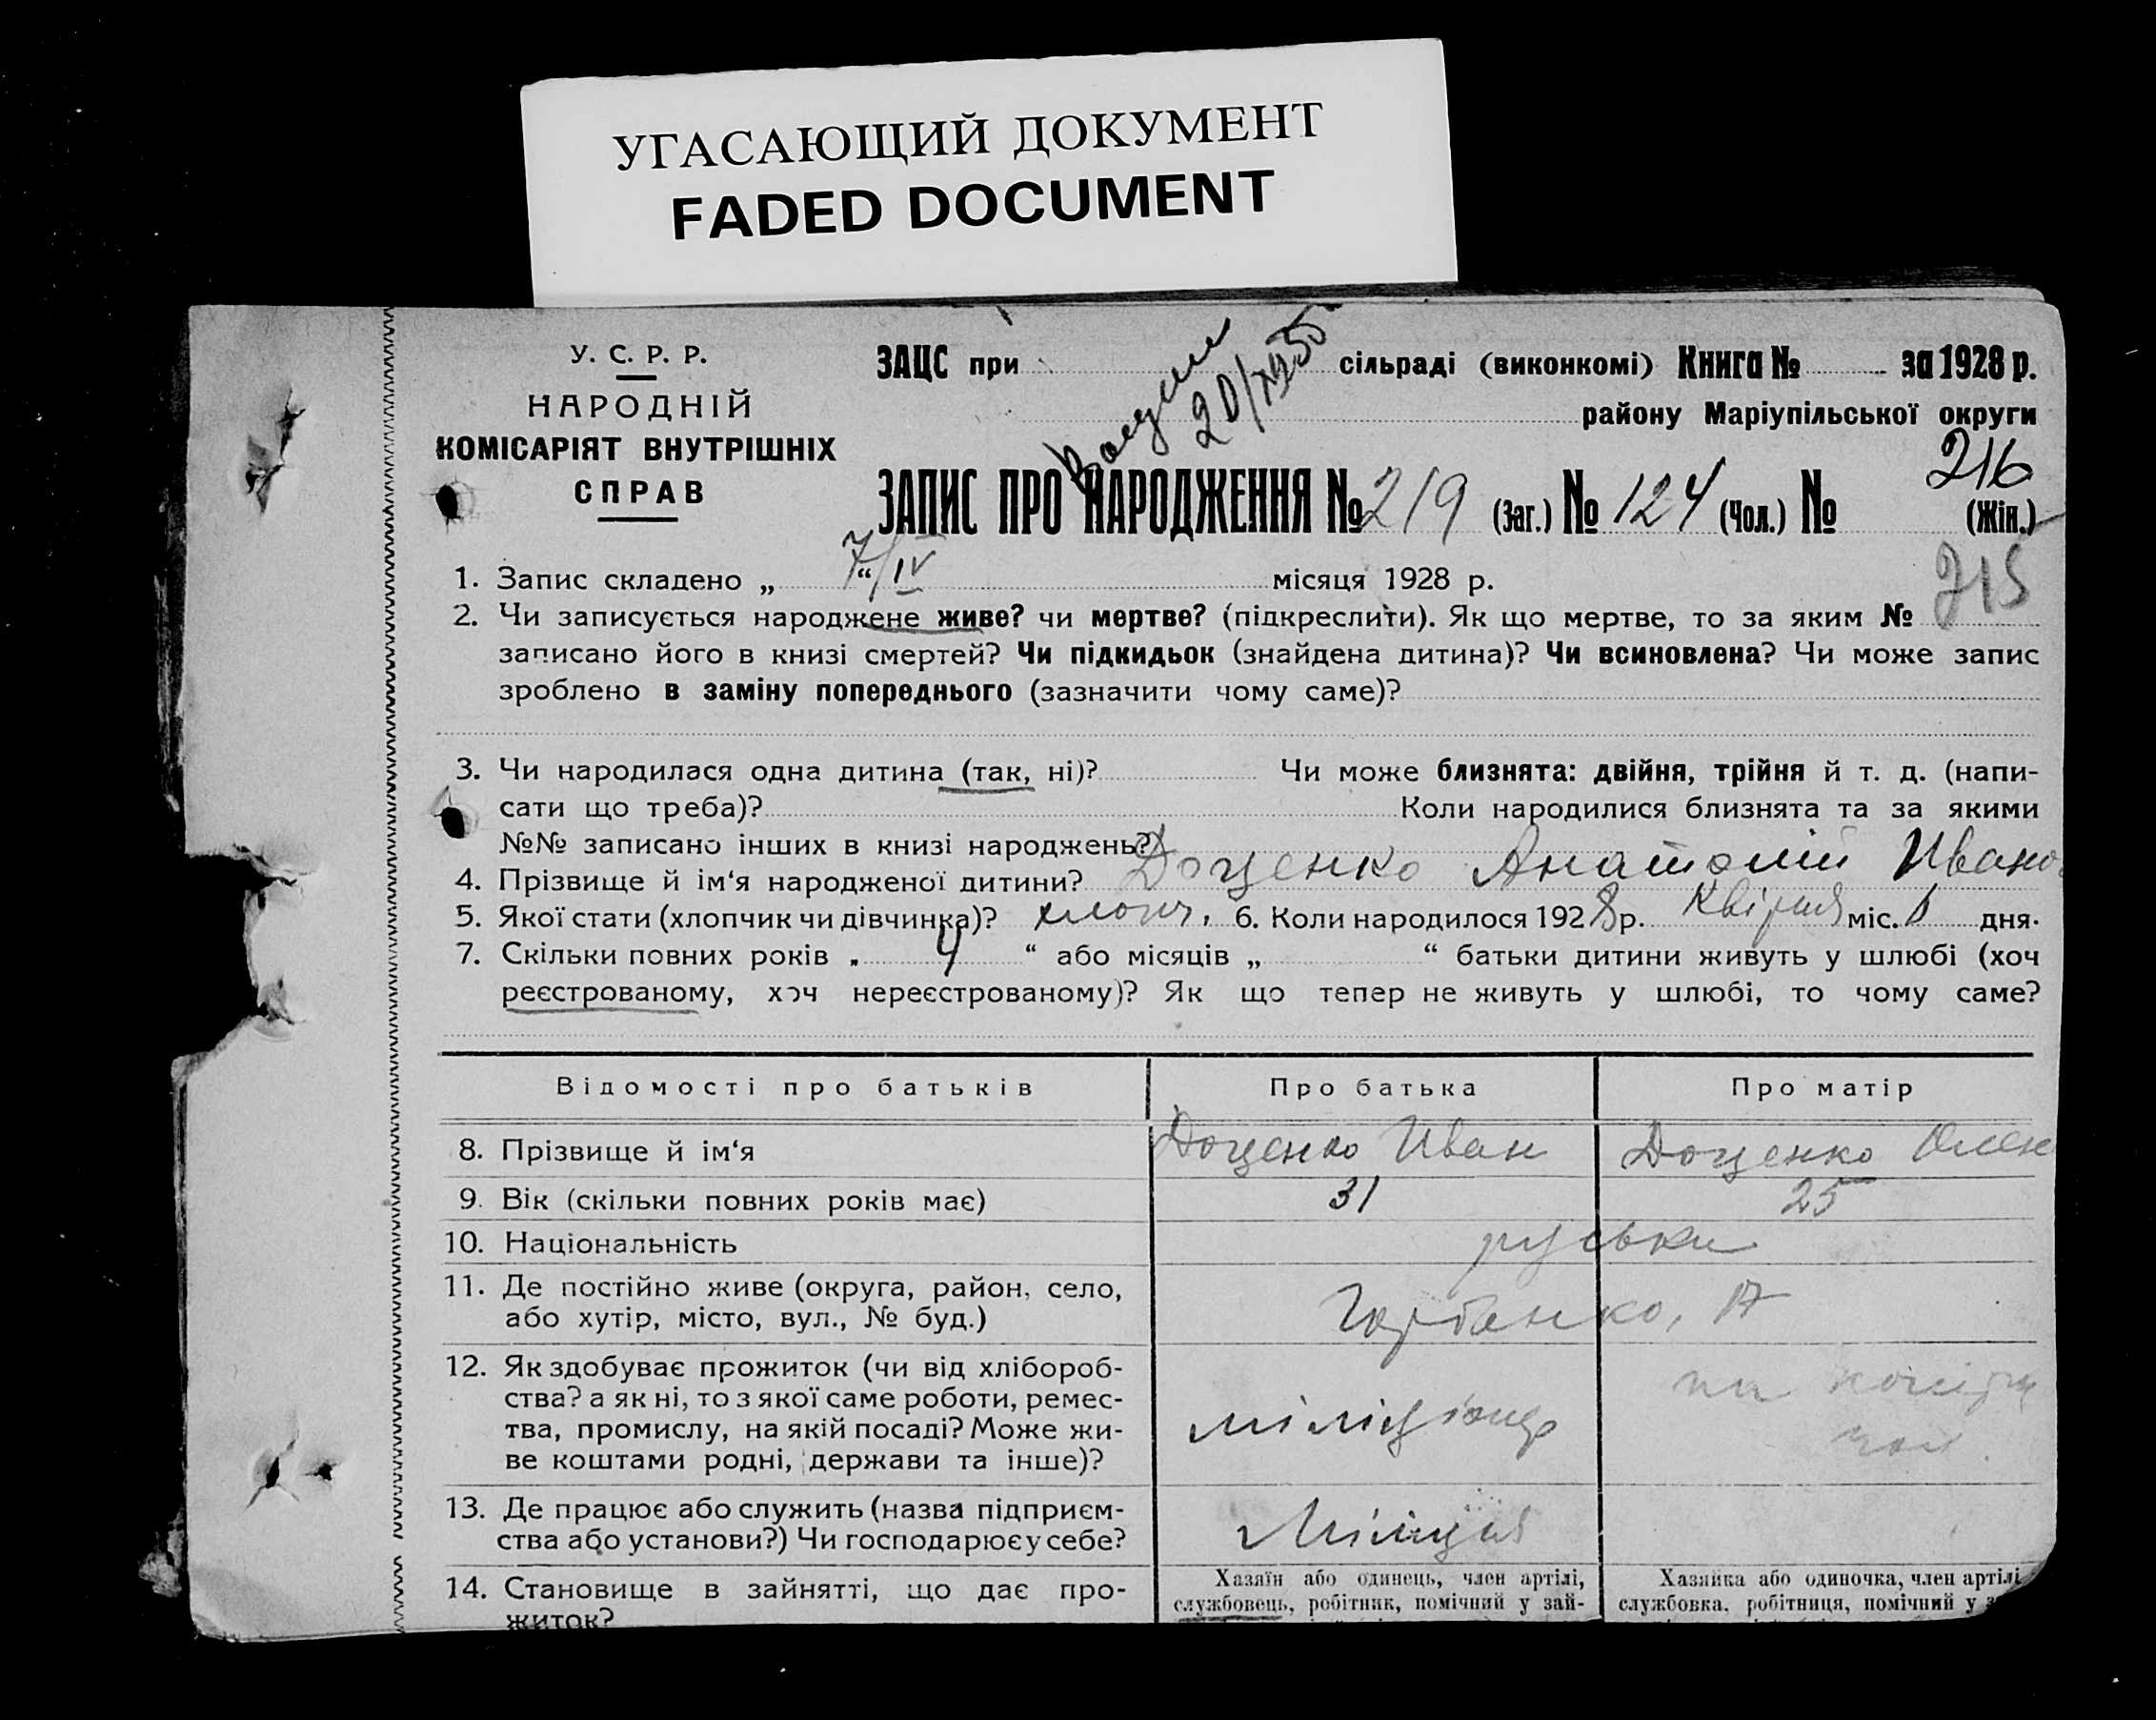 УГАСАЮЩИЙ ДОКУМЕНТ
FADED DOCUMENT
У. С. Р. Р.
НАРОДНІЙ
КОМІСАРІЯТ ВНУТРІШНІХ
СПРАВ
ЗАЦС при сільраді (виконкомі) Книга № за 1928 р.
району Маріупільської округи
20/
216
ЗАПИС ПРО НАРОДЖЕННЯ № 219 (Заг.) № 124 (Чол.) № (Жін.)
215
1. Запис складено „ 7/IV “ місяця 1928 р.
2. Чи записується народжене живе? чи мертве? (підкреслити). Як що мертве, то за яким №
записано його в книзі смертей? Чи підкидьок (знайдена дитина)? Чи всиновлена? Чи може запис
зроблено в заміну попереднього (зазначити чому саме)?
3. Чи народилася одна дитина (так, ні)? Чи може близнята: двійня, трійня й т. д. (напи-
сати що треба)? Коли народилися близнята та за якими
№№ записано інших в книзі народжень?
4. Прізвище й ім‘я народженої дитини? Доценко Анатолий Ивано
5. Якої статі (хлопчик чи дівчинка)? хлопч. 6. Коли народилося 1928 р. Квітня міс. дня.
7. Скільки повних років „ 4 “ або місяців „ “ батьки дитини живуть у шлюбі (хоч
реєстрованому, хоч нереєстрованому)? Як що тепер не живуть у шлюбі, то чому саме?
Відомості про батьків Про батька Про матір
8. Прізвище й ім‘я Доценко Иван Доценко Олен
9. Вік (скільки повних років має) 31 25
10. Національність руськи
11. Де постійно живе (округа, район, село,
або хутір, місто, вул., № буд.)
Горбенко, 17
12. Як здобуває прожиток (чи від хлібороб-
ства? а як ні, то з якої саме роботи, ремес-
тва, промислу, на якій посаді? Може жи-
ве коштами родні, держави та інше)?
міліціонер
на
чол.
13. Де працює або служить (назва підприєм-
ства або установи?) Чи господарює у себе?
Міліція
14. Становище в зайнятті, що дає про-
житок?
Хазяїн або одинець, член артілі,
службовець, робітник, помічний у зай-
Хазяйка або одиночка, член артілі
службовка, робітниця, помічний у з